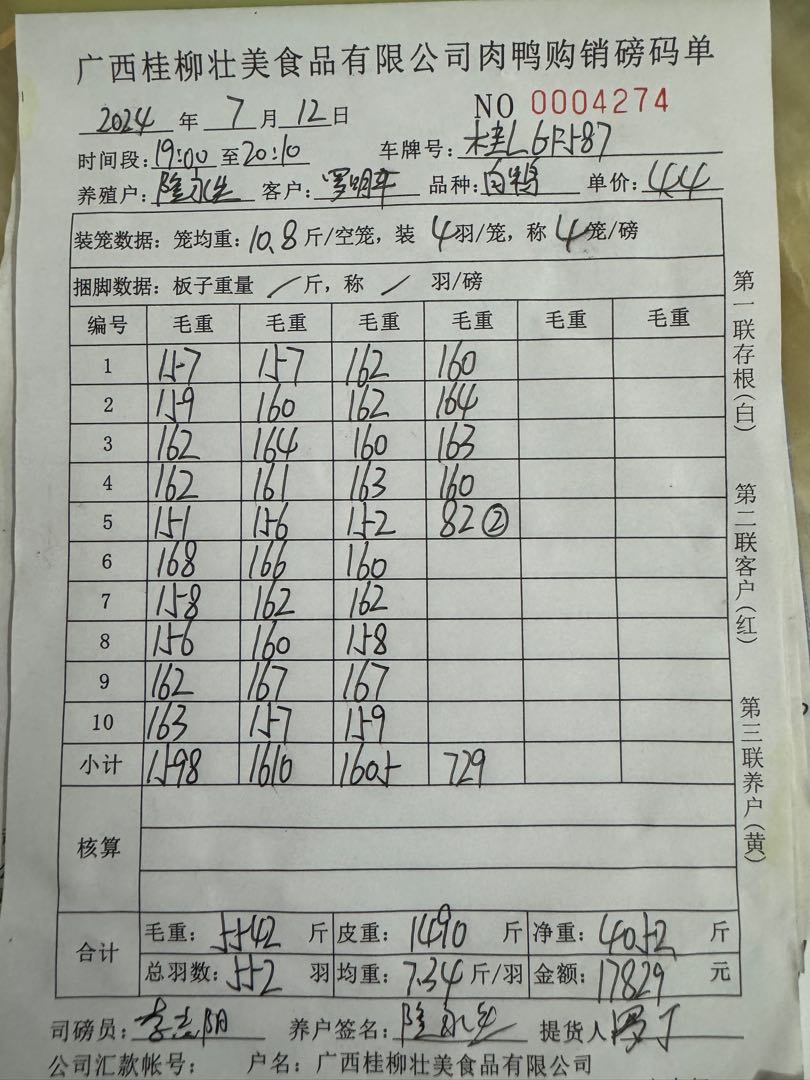 广西桂柳壮美食品有限公司肉鸭购销磅码单
2024 年 7 月 12 日 NO 0004274
时间段: 19:00 至 20:10 车牌号: 桂L6R587
养殖户: 隆永生 客户: 罗明 品种: 白鸭 单价: 4.4
装笼数据: 笼均重: 10.8 斤/空笼, 装 4 羽/笼, 称 4 笼/磅
捆脚数据: 板子重量 / 斤, 称 / 羽/磅
编号 毛重 毛重 毛重 毛重 毛重 毛重
1 157 157 162 160
2 159 160 162 164
3 162 164 160 163
4 162 161 163 160
5 151 156 152 82 ②
6 168 166 160
7 158 162 162
8 156 160 158
9 162 167 167
10 163 157 159
小计 1598 1610 1605 729
核算
合计
毛重: 5542 斤 皮重: 1490 斤 净重: 4052 斤
总羽数: 552 羽 均重: 7.34 斤/羽 金额: 17829 元
司磅员: 李志阳 养户签名: 隆永生 提货人
公司汇款帐号: 户名: 广西桂柳壮美食品有限公司
第一联存根(白)
第二联客户(红)
第三联养户(黄)